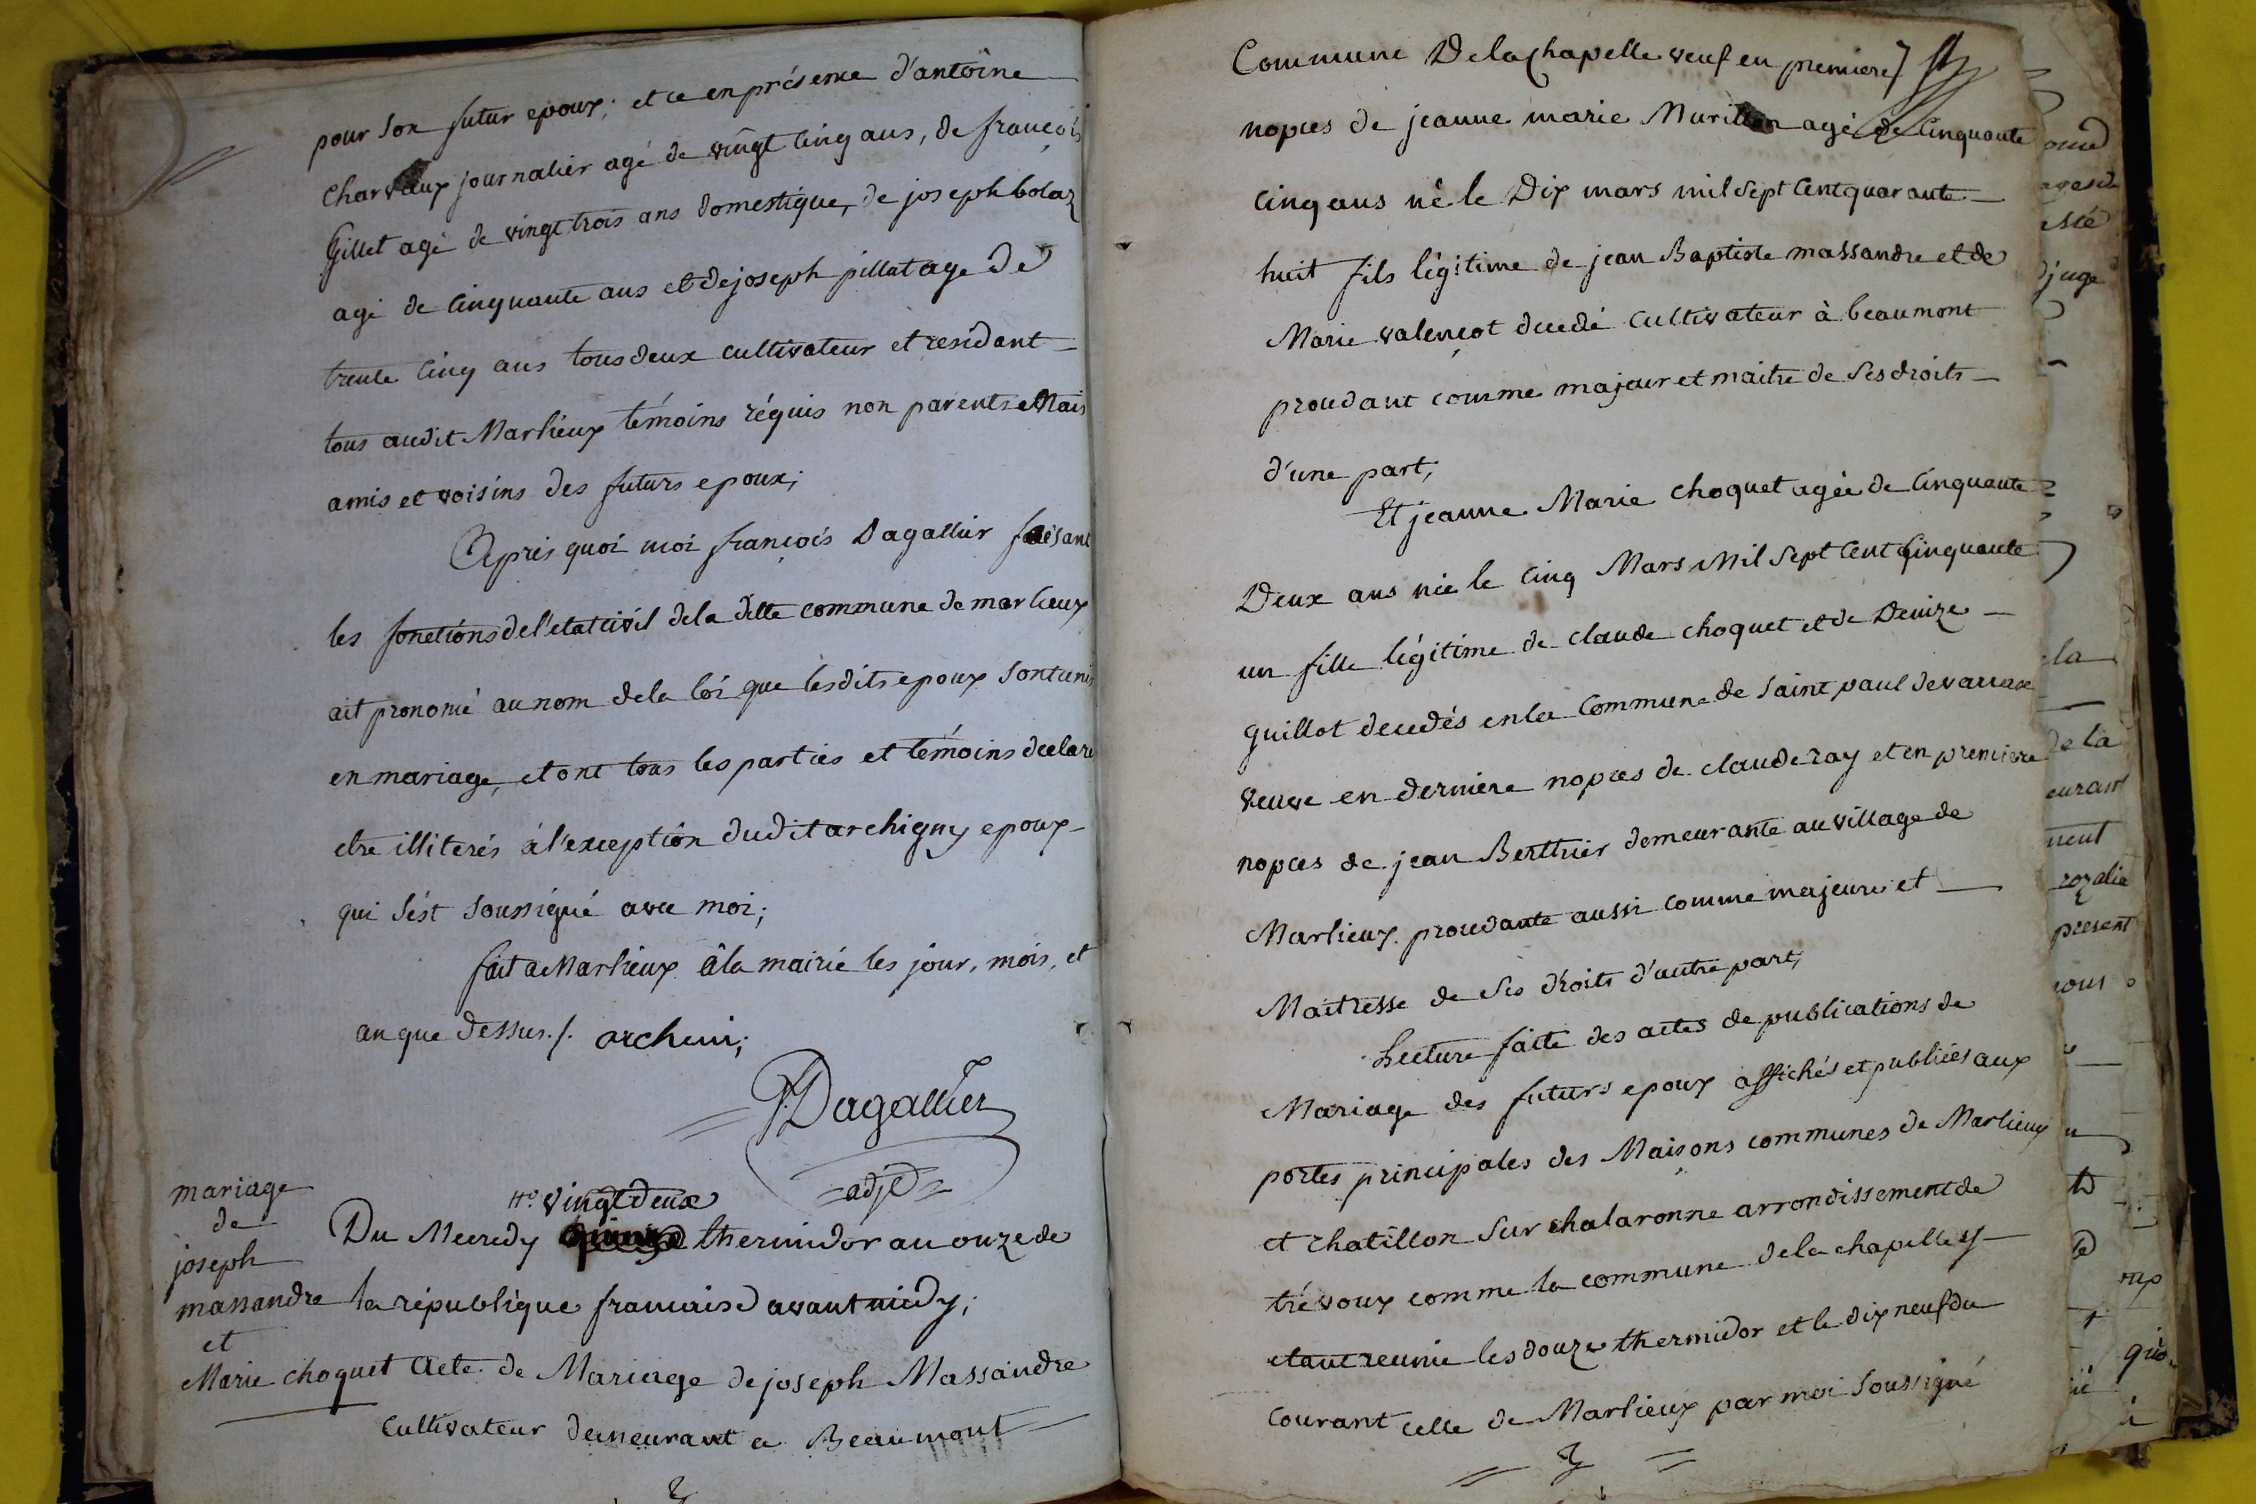 pour son futur epoux; et ce en présence d'antoine
charvaux journalier agé de vingt cinq ans, de françois
Gillet agé de vingt trois ans domestique, de joseph bolaz
agé de cinquante ans et de joseph pillat age de
trente cinq ans tous deux cultivateur et residant
tous audit Marlieux témoins réquis non parents Mais
amis et voisins des futurs epoux;
Après quoi moi françois Dagallier faisant
les fonctions de l'etat civil de la ditte commune de marlieux
ait prononcé au nom de la loi que lesdits epoux sont unis
en mariage, et ont tous les parties et témoins declaré
etre illiterés à l'exception dudit archigny epoux
qui s'ést soussigné avec moi;
fait a Marlieux à la mairie les jour, mois, et
an que dessus./. archini;
Dagallier
adjt
mariage
de
joseph
massandre
et
Marie choquet
no. vingt deux
Du Mecredy thermidor an onze de
la république francaise avant midy;
Acte de Mariage de joseph Massandre
Cultivateur demeurant a Beaumont
Commune De la Chapelle veuf en premiere
nopces de jeanne marie Murillon agé de Cinquante
cinq ans né le Dix mars mil sept Cent quarante
huit fils légitime de jean Baptiste massandre et de
Marie valençot decedé Cultivateur à beaumont
procedant comme majeur et maitre de ses droits
d'une part;
Et jeanne Marie choquet agée de Cinquante
Deux ans née le cinq Mars Mil Sept Cent Cinquante
un fille légitime de claude choquet et de Denize
guillot decedés en la Commune de saint paul de varraxe
veuve en derniere nopces de claude ray et en premiere
nopces de jean Berthier demeurante au village de
Marlieux procedante aussi comme majeure et
Maitresse de ses droits d'autre part;
Lecture faite des actes de publications de
Mariage des futurs epoux affichés et publiées aux
portes principales des Maisons communes de Marlieux
et chatillon sur chalaronne arrondissement de
trévoux comme la commune de la chapelle y
etant reunie les douze thermidor et le dix neuf du
Courant celle de Marlieux par moi soussigné